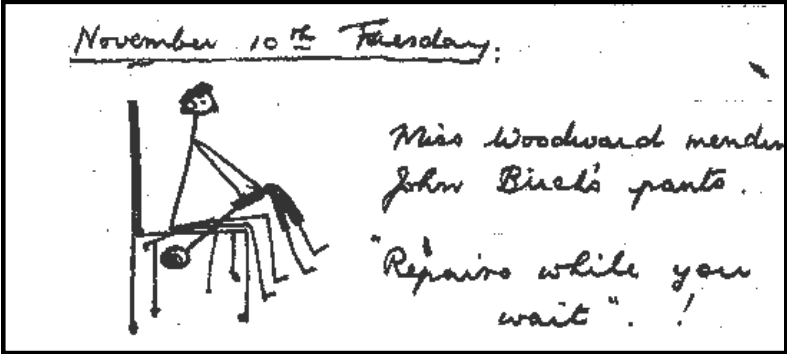 November 10th Tuesday.
Miss Woodward mendin
John Birch's pants.
"Repairs while you
wait". !